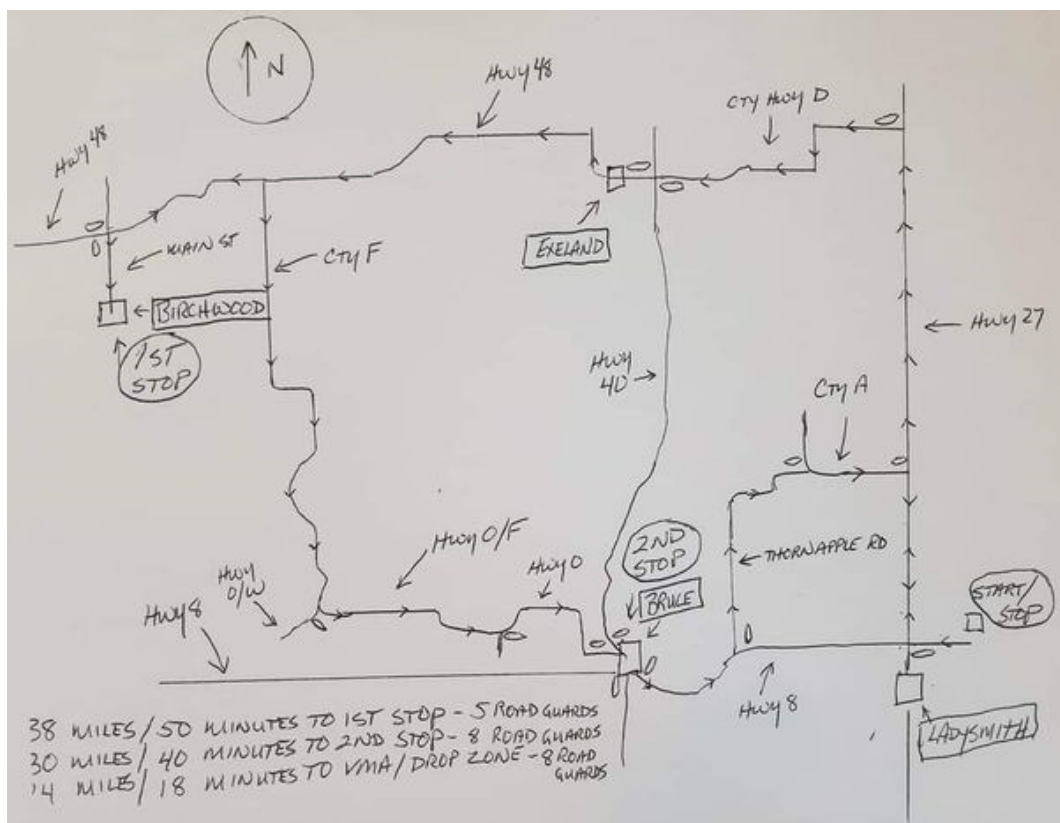 N
Hwy 48
CTY Hwy D
Hwy 48
MAIN ST
CTY F
EXELAND
BIRCHWOOD
1ST
STOP
Hwy 27
Hwy
40
CTY A
Hwy O/F
2ND
STOP
Hwy O
THORNAPPLE RD
Hwy
O/W
BRUCE
START/
STOP
Hwy 8
Hwy 8
LADYSMITH
38 MILES/50 MINUTES TO 1ST STOP - 5 ROAD GUARDS
30 MILES/40 MINUTES TO 2ND STOP - 8 ROAD GUARDS
14 MILES/18 MINUTES TO VMA/DROP ZONE - 8 ROAD
GUARDS